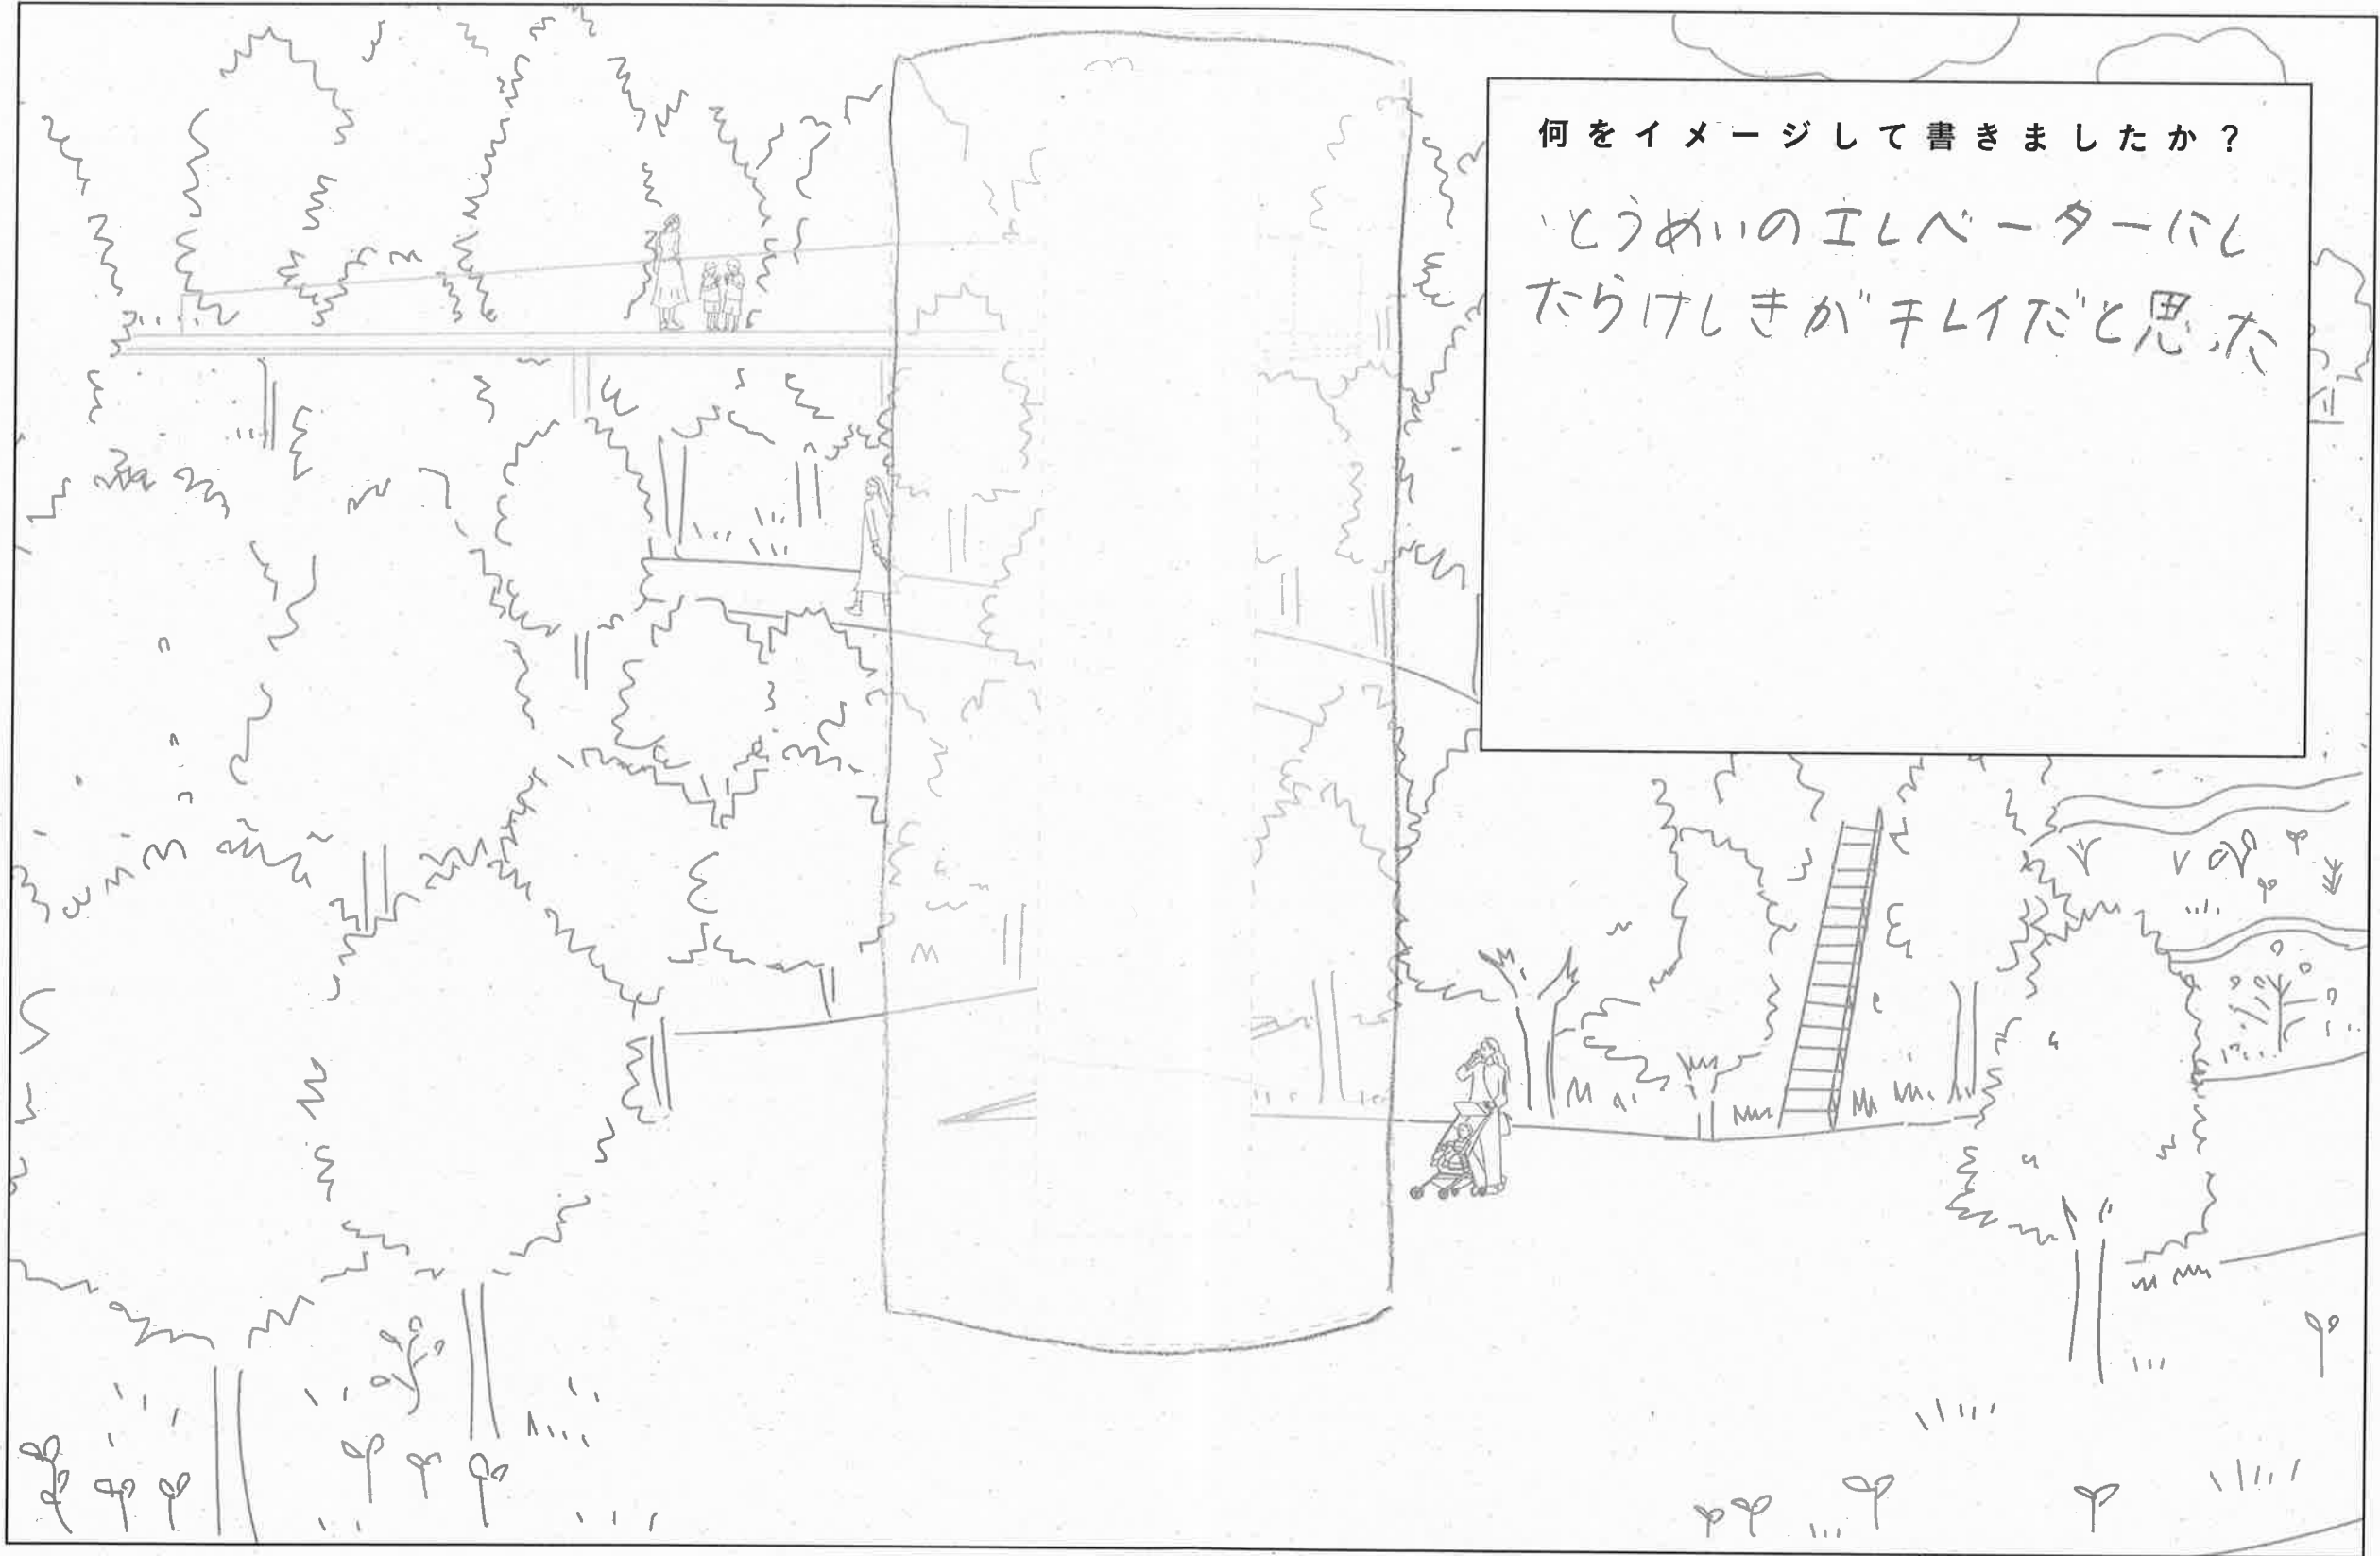 何をイメージして書きましたか？
とうめいのエレベーターにし
たらけしきがキレイだと思った